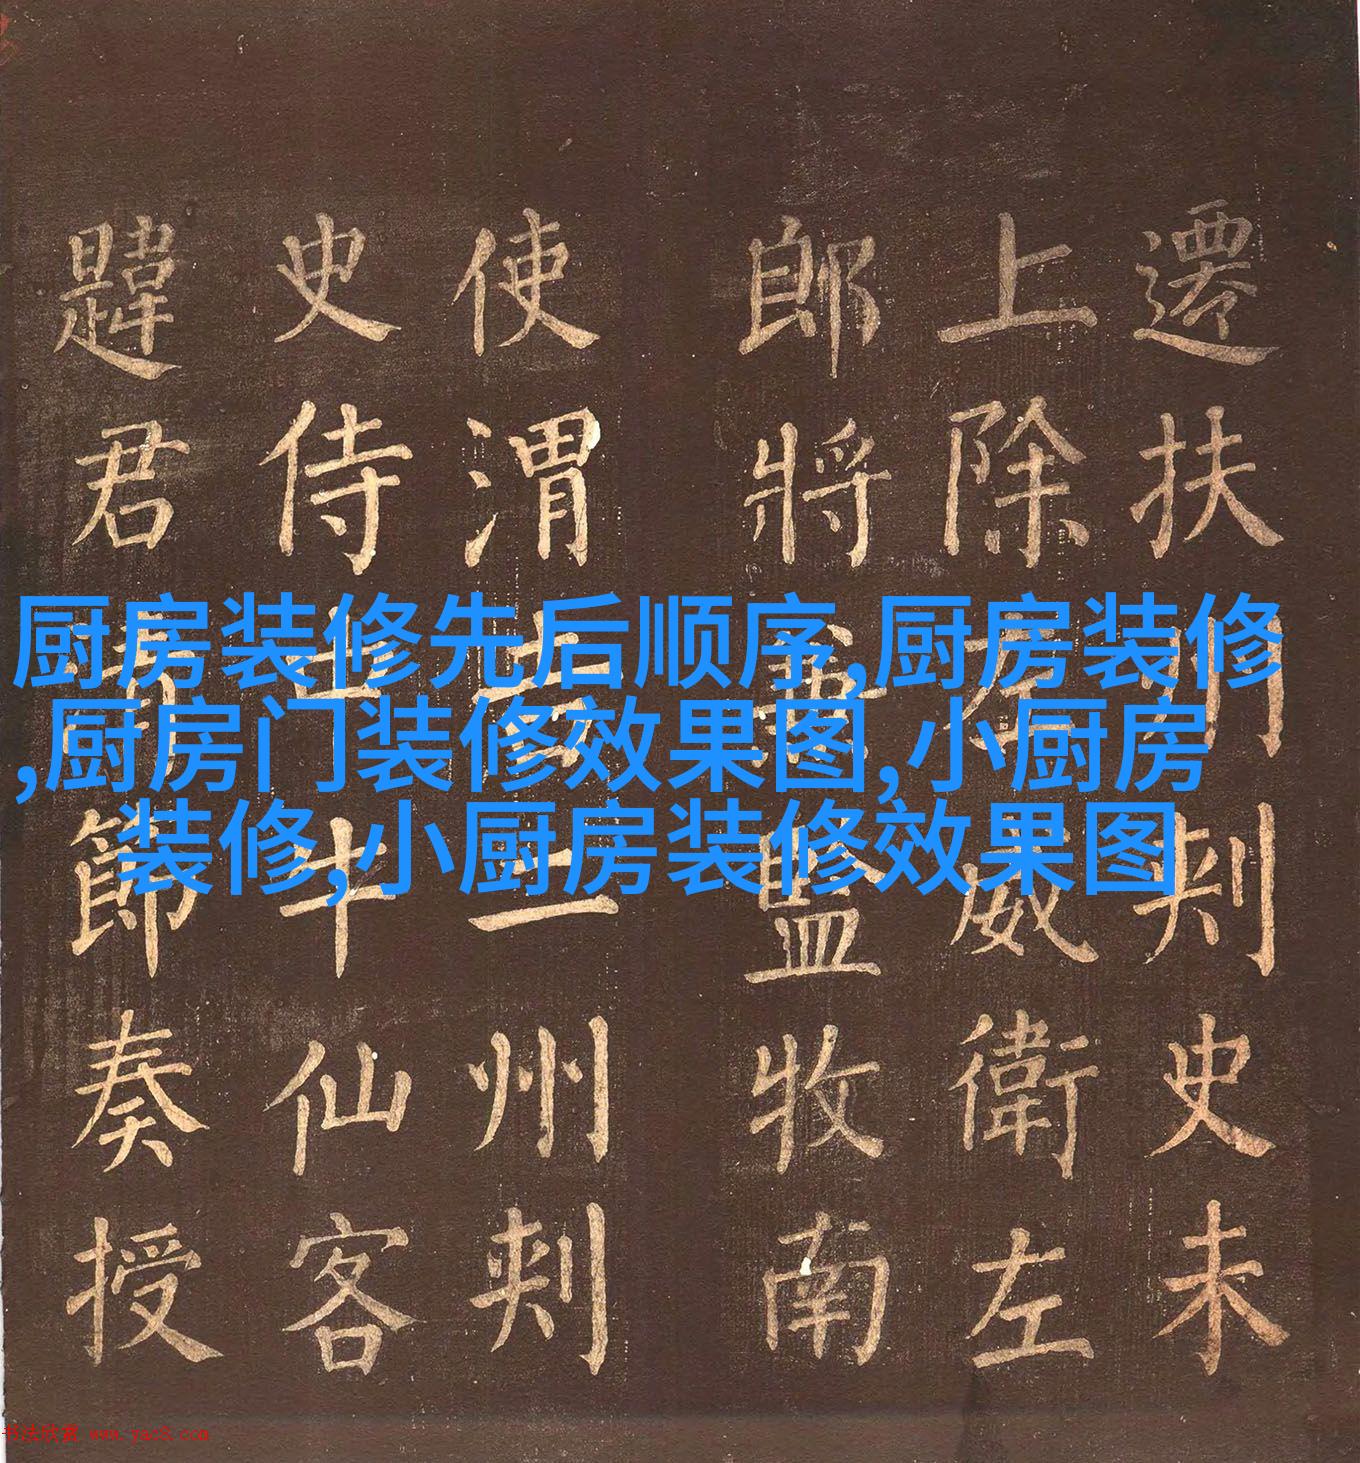 遷扶州刺史未
上除左威衛左
郎將監牧南
使渭二州刺
史侍中牛仙客
韙君清節奏授
厨房装修先后顺序,厨房装修
,厨房门装修效果图,小厨房
装修,小厨房装修效果图
书法欣赏 www.yac8.com